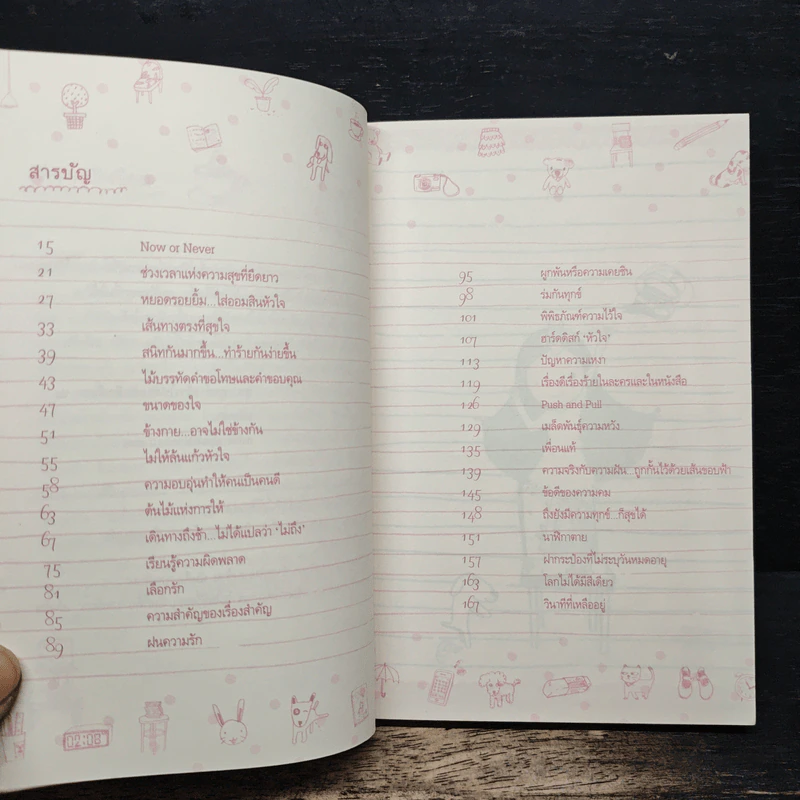 สารบัญ
15 Now or Never
21 ช่วงเวลาแห่งความสุขที่ยืดยาว
27 หยอดรอยยิ้ม...ใส่ออมสินหัวใจ
33 เส้นทางตรงที่สุขใจ
39 สนิทกันมากขึ้น...ทำร้ายกันง่ายขึ้น
43 ไม้บรรทัดคำขอโทษและคำขอบคุณ
47 ขนาดของใจ
51 ข้างกาย...อาจไม่ใช่ข้างกัน
55 ไม่ให้ล้นแก้วหัวใจ
58 ความอบอุ่นทำให้คนเป็นคนดี
63 ต้นไม้แห่งการให้
67 เดินทางถึงช้า...ไม่ได้แปลว่า 'ไม่ถึง'
75 เรียนรู้ความผิดพลาด
81 เลือกรัก
85 ความสำคัญของเรื่องสำคัญ
89 ฝนความรัก
02:08
95 ผูกพันหรือความเคยชิน
98 ร่มกันทุกข์
101 พิพิธภัณฑ์ความไว้ใจ
107 ฮาร์ดดิสก์ 'หัวใจ'
113 ปัญหาความเหงา
119 เรื่องดีเรื่องร้ายในละครและในหนังสือ
126 Push and Pull
129 เมล็ดพันธุ์ความหวัง
135 เพื่อนแท้
139 ความจริงกับความฝัน...ถูกกั้นไว้ด้วยเส้นขอบฟ้า
145 ข้อดีของความคม
148 ถึงยังมีความทุกข์...ก็สุขได้
151 นาฬิกาตาย
157 ฝากระป๋องที่ไม่ระบุวันหมดอายุ
163 โลกไม่ได้มีสีเดียว
167 วินาทีที่เหลืออยู่